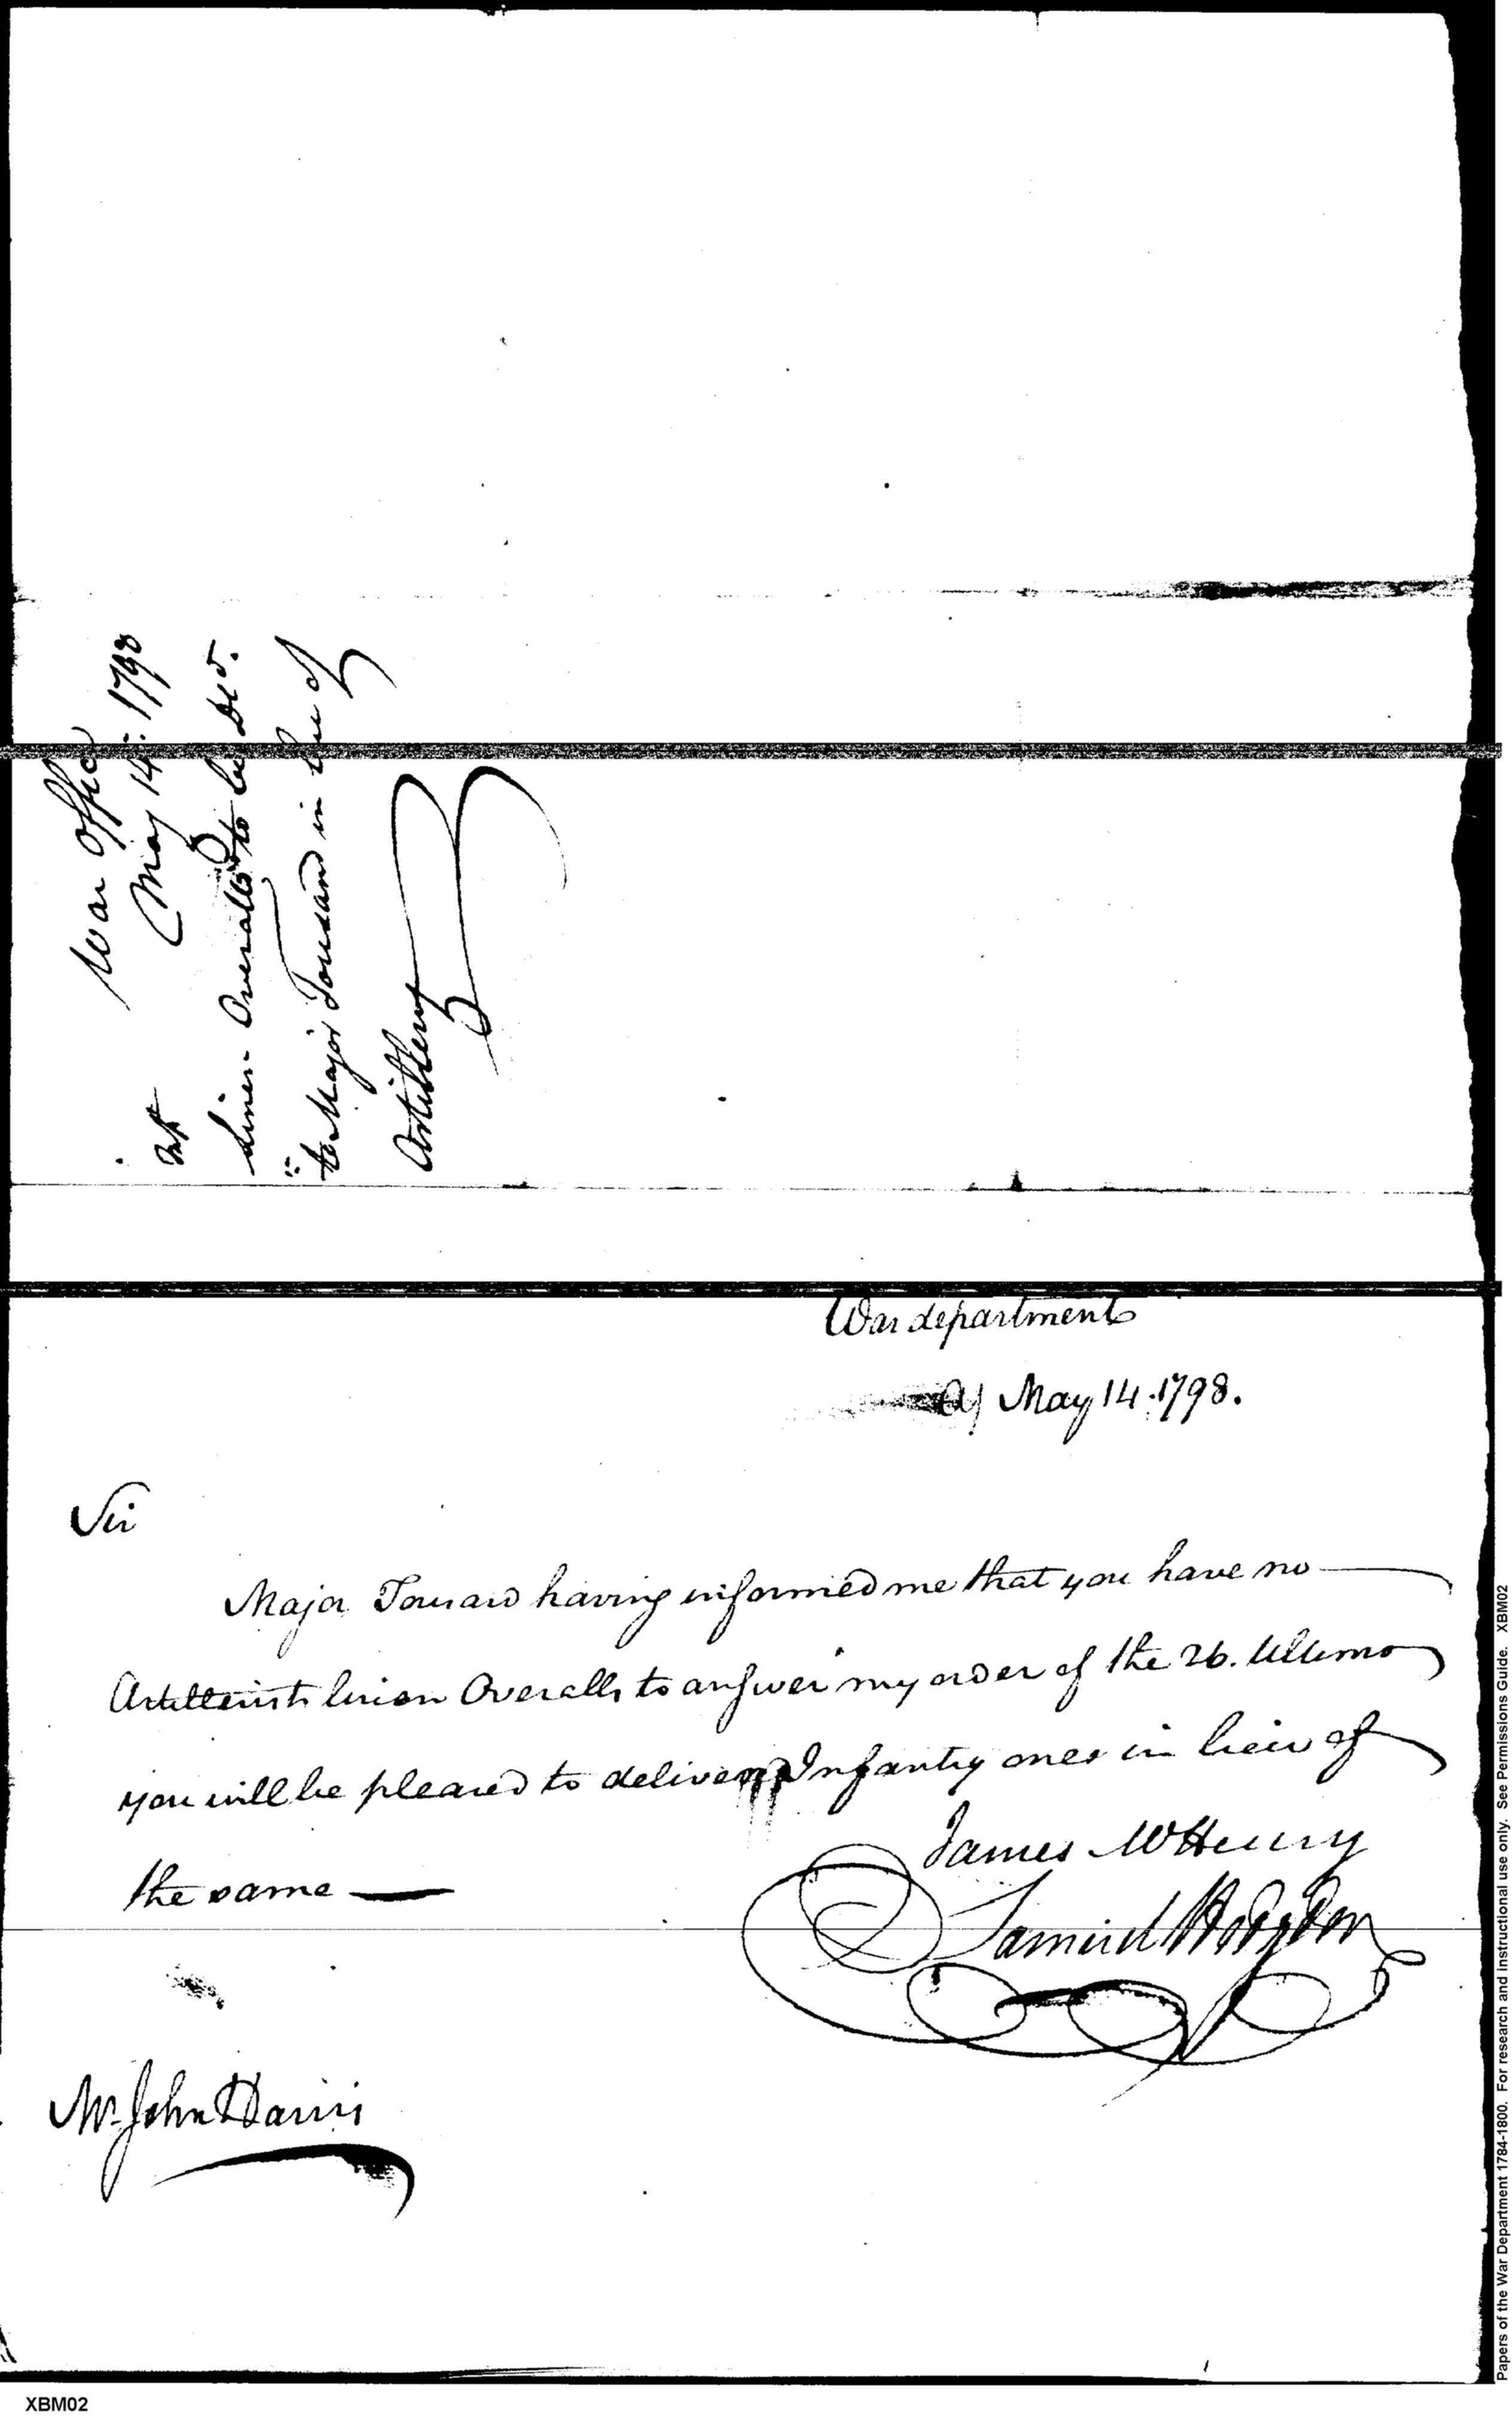 War Office
May 14: 1798
Inf
Linen Overalls to be Del'd.
to Major Tousard in lieu of
Artillery
War department
May 14. 1798.
Sir
Major Tousard having informed me that you have no
Artillerists linen Overalls to answer my order of the 26. Ultimo
you will be pleased to deliver Infantry ones in lieu of
the same
James McHenry
Samuel Hodgdon
Mr. John Harris
Papers of the War Department 1784-1800. For research and instructional use only. See Permissions Guide. XBM02
XBM02